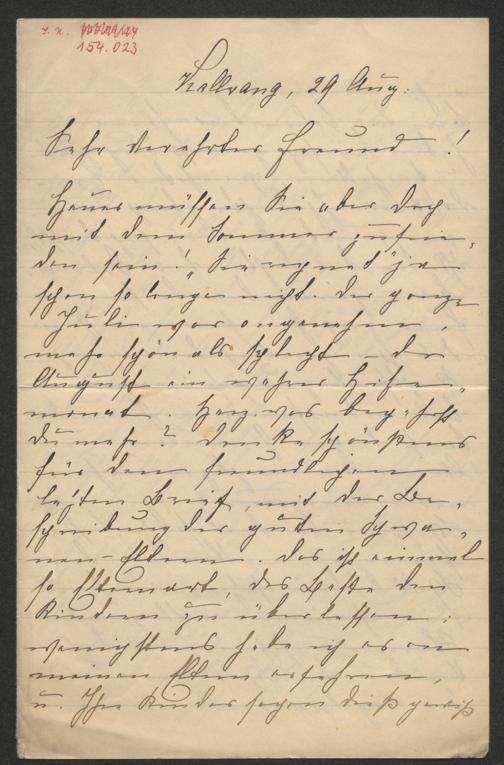 154.023
Kallwang, 29 Aug:
Sehr verehrter Freund!
Heuer müssen Sie aber doch
mit dem Sommer zufrie-
den sein! „Sie regnet" ja
schon so lange nicht. Der ganze
Juli war angenehm,
mehr schön als schlecht – der
August ein wahrer Hitze-
monat. Herz was begehrst
Du mehr? Danke schönstens
für den freundlichen
letzten Brief, mit der Be-
schreibung der guten Schwa-
nen-Eltern. Das ist einmal
so Elternart, das Beste den
Kindern zu überlassen;
wenigstens habe ich es an
meinen Eltern erfahren,
u. Ihre Kinder sagen dieß gewiß